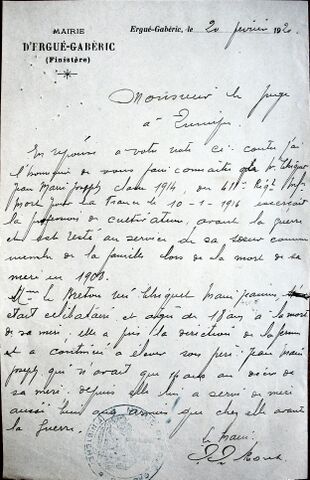 MAIRIE
D'ERGUÉ-GABÉRIC
(Finistère)
Ergué-Gabéric, le 20 février 192
Monsieur le juge
à Quimper
En réponse a votre note ci-contre j'ai
l'honneur de vous faire connaitre que Mr
Jean Marie Joseph classe 1914, du Régt Inf
mort pour la France le 10-1-1916 exercait
la profession de cultivateur, avant la guerre
est resté au service de sa soeur comme
membre de la famille lors de la mort de sa
mere en 1908.
Mme Le Breton née Marie Jeanne,
etait celibataire et agée de 18 ans à la mort
de sa mere, elle a pris la direction de la ferme
et a continué a élever son frere Jean Marie
Joseph qui n'avait que 14 ans au décès de
sa mere, depuis elle lui a servi de mere
aussi bien aux armées que chez elle avant
la guerre.
Le Maire